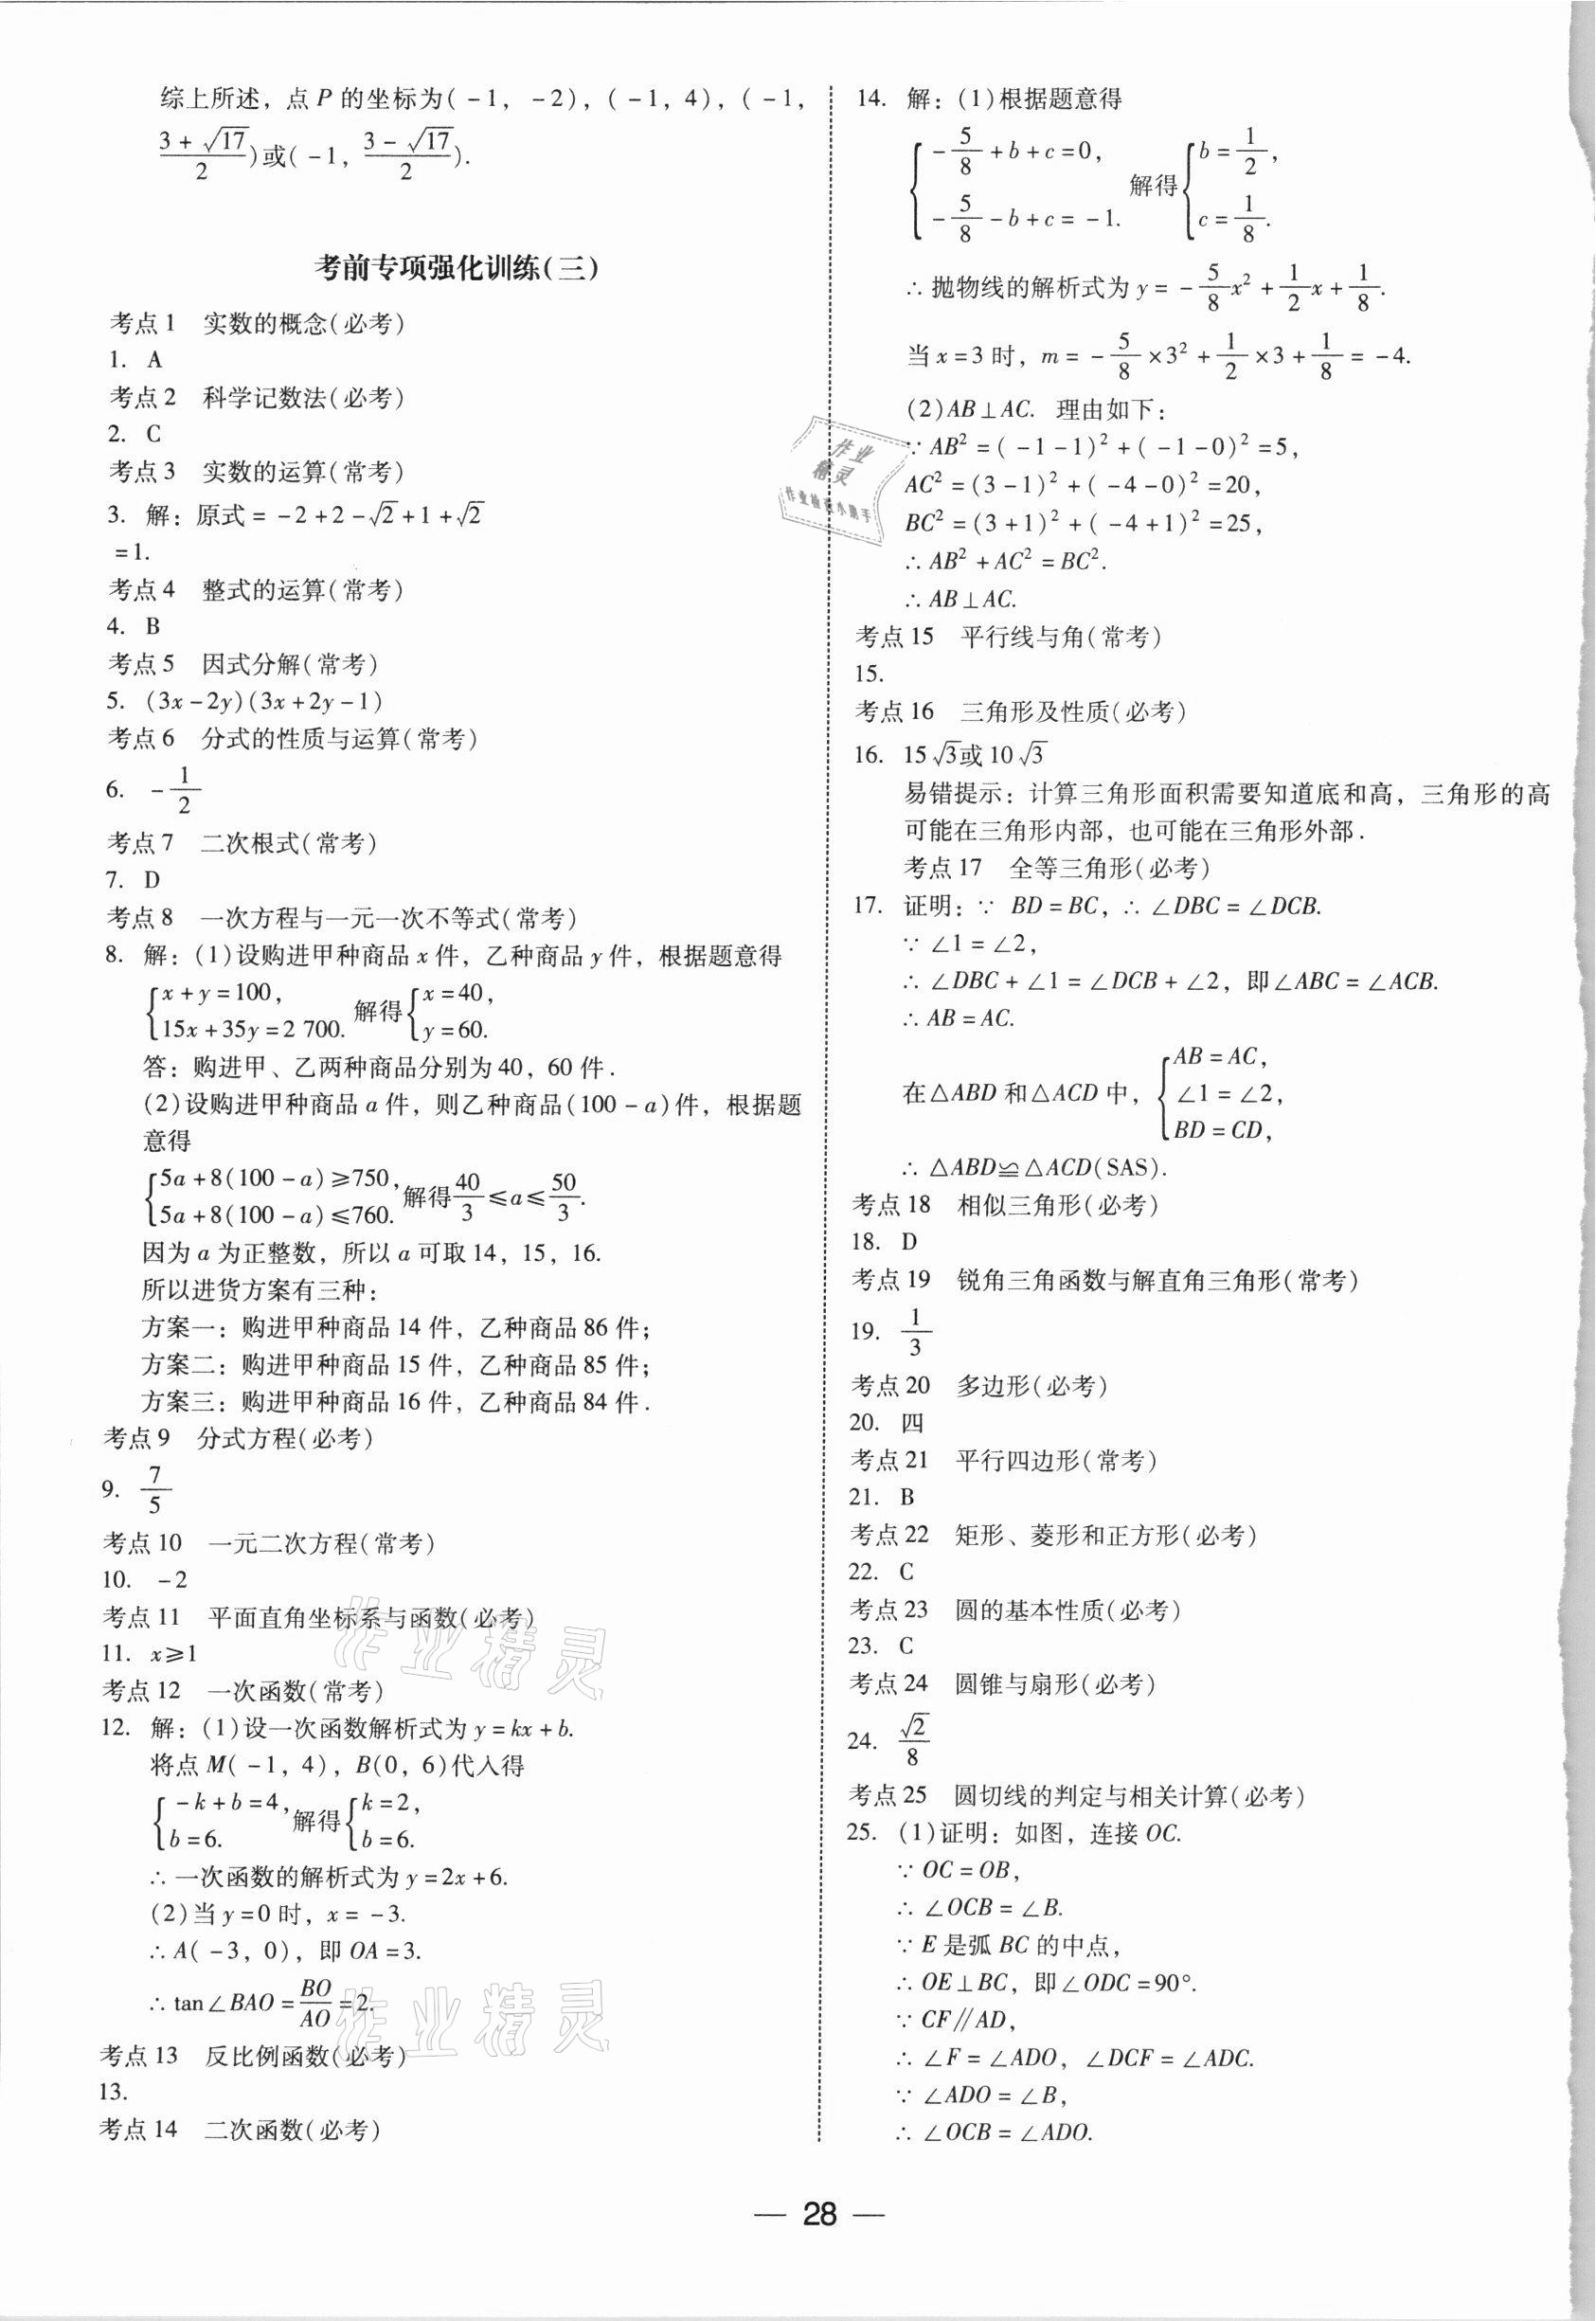 综上所述，点 P 的坐标为( -1， -2)，( -1，4)，( -1，
(3+√17)/2)或( -1，(3-√17)/2).
考前专项强化训练(三)
考点 1 实数的概念(必考)
1. A
考点 2 科学记数法(必考)
2. C
考点 3 实数的运算(常考)
3. 解：原式 = -2+2-√2+1+√2
=1.
考点 4 整式的运算(常考)
4. B
考点 5 因式分解(常考)
5. (3x-2y)(3x+2y-1)
考点 6 分式的性质与运算(常考)
6. -1/2
考点 7 二次根式(常考)
7. D
考点 8 一次方程与一元一次不等式(常考)
8. 解：(1)设购进甲种商品 x 件，乙种商品 y 件，根据题意得
{x+y=100，
15x+35y=2 700. 解得{x=40，
y=60.
答：购进甲、乙两种商品分别为 40，60 件.
(2)设购进甲种商品 a 件，则乙种商品(100-a)件，根据题
意得
{5a+8(100-a)≥750，
5a+8(100-a)≤760. 解得40/3≤a≤50/3.
因为 a 为正整数，所以 a 可取 14，15，16.
所以进货方案有三种：
方案一：购进甲种商品 14 件，乙种商品 86 件；
方案二：购进甲种商品 15 件，乙种商品 85 件；
方案三：购进甲种商品 16 件，乙种商品 84 件.
考点 9 分式方程(必考)
9. 7/5
考点 10 一元二次方程(常考)
10. -2
考点 11 平面直角坐标系与函数(必考)
11. x≥1
考点 12 一次函数(常考)
12. 解：(1)设一次函数解析式为 y=kx+b.
将点 M( -1，4)，B(0，6)代入得
{-k+b=4，
b=6. 解得{k=2，
b=6.
∴ 一次函数的解析式为 y=2x+6.
(2)当 y=0 时，x= -3.
∴ A( -3，0)，即 OA=3.
∴ tan∠BAO=BO/AO=2.
考点 13 反比例函数(必考)
13.
考点 14 二次函数(必考)
14. 解：(1)根据题意得
{-5/8+b+c=0，
-5/8-b+c= -1. 解得{b=1/2，
c=1/8.
∴ 抛物线的解析式为 y= -5/8x²+1/2x+1/8.
当 x=3 时，m= -5/8×3²+1/2×3+1/8= -4.
(2)AB⊥AC. 理由如下：
∵ AB²=( -1-1)²+( -1-0)²=5，
AC²=(3-1)²+( -4-0)²=20，
BC²=(3+1)²+( -4+1)²=25，
∴ AB²+AC²=BC².
∴ AB⊥AC.
考点 15 平行线与角(常考)
15.
考点 16 三角形及性质(必考)
16. 15√3或 10√3
易错提示：计算三角形面积需要知道底和高，三角形的高
可能在三角形内部，也可能在三角形外部.
考点 17 全等三角形(必考)
17. 证明：∵ BD=BC，∴ ∠DBC=∠DCB.
∵ ∠1=∠2，
∴ ∠DBC+∠1=∠DCB+∠2，即∠ABC=∠ACB.
∴ AB=AC.
在△ABD 和△ACD 中，{AB=AC，
∠1=∠2，
BD=CD，
∴ △ABD≌△ACD(SAS).
考点 18 相似三角形(必考)
18. D
考点 19 锐角三角函数与解直角三角形(常考)
19. 1/3
考点 20 多边形(必考)
20. 四
考点 21 平行四边形(常考)
21. B
考点 22 矩形、菱形和正方形(必考)
22. C
考点 23 圆的基本性质(必考)
23. C
考点 24 圆锥与扇形(必考)
24. √2/8
考点 25 圆切线的判定与相关计算(必考)
25. (1)证明：如图，连接 OC.
∵ OC=OB，
∴ ∠OCB=∠B.
∵ E 是弧 BC 的中点，
∴ OE⊥BC，即∠ODC=90°.
∵ CF∥AD，
∴ ∠F=∠ADO，∠DCF=∠ADC.
∵ ∠ADO=∠B，
∴ ∠OCB=∠ADO.
— 28 —
作业
精灵
作业检查小助手
作业精灵
作业精灵